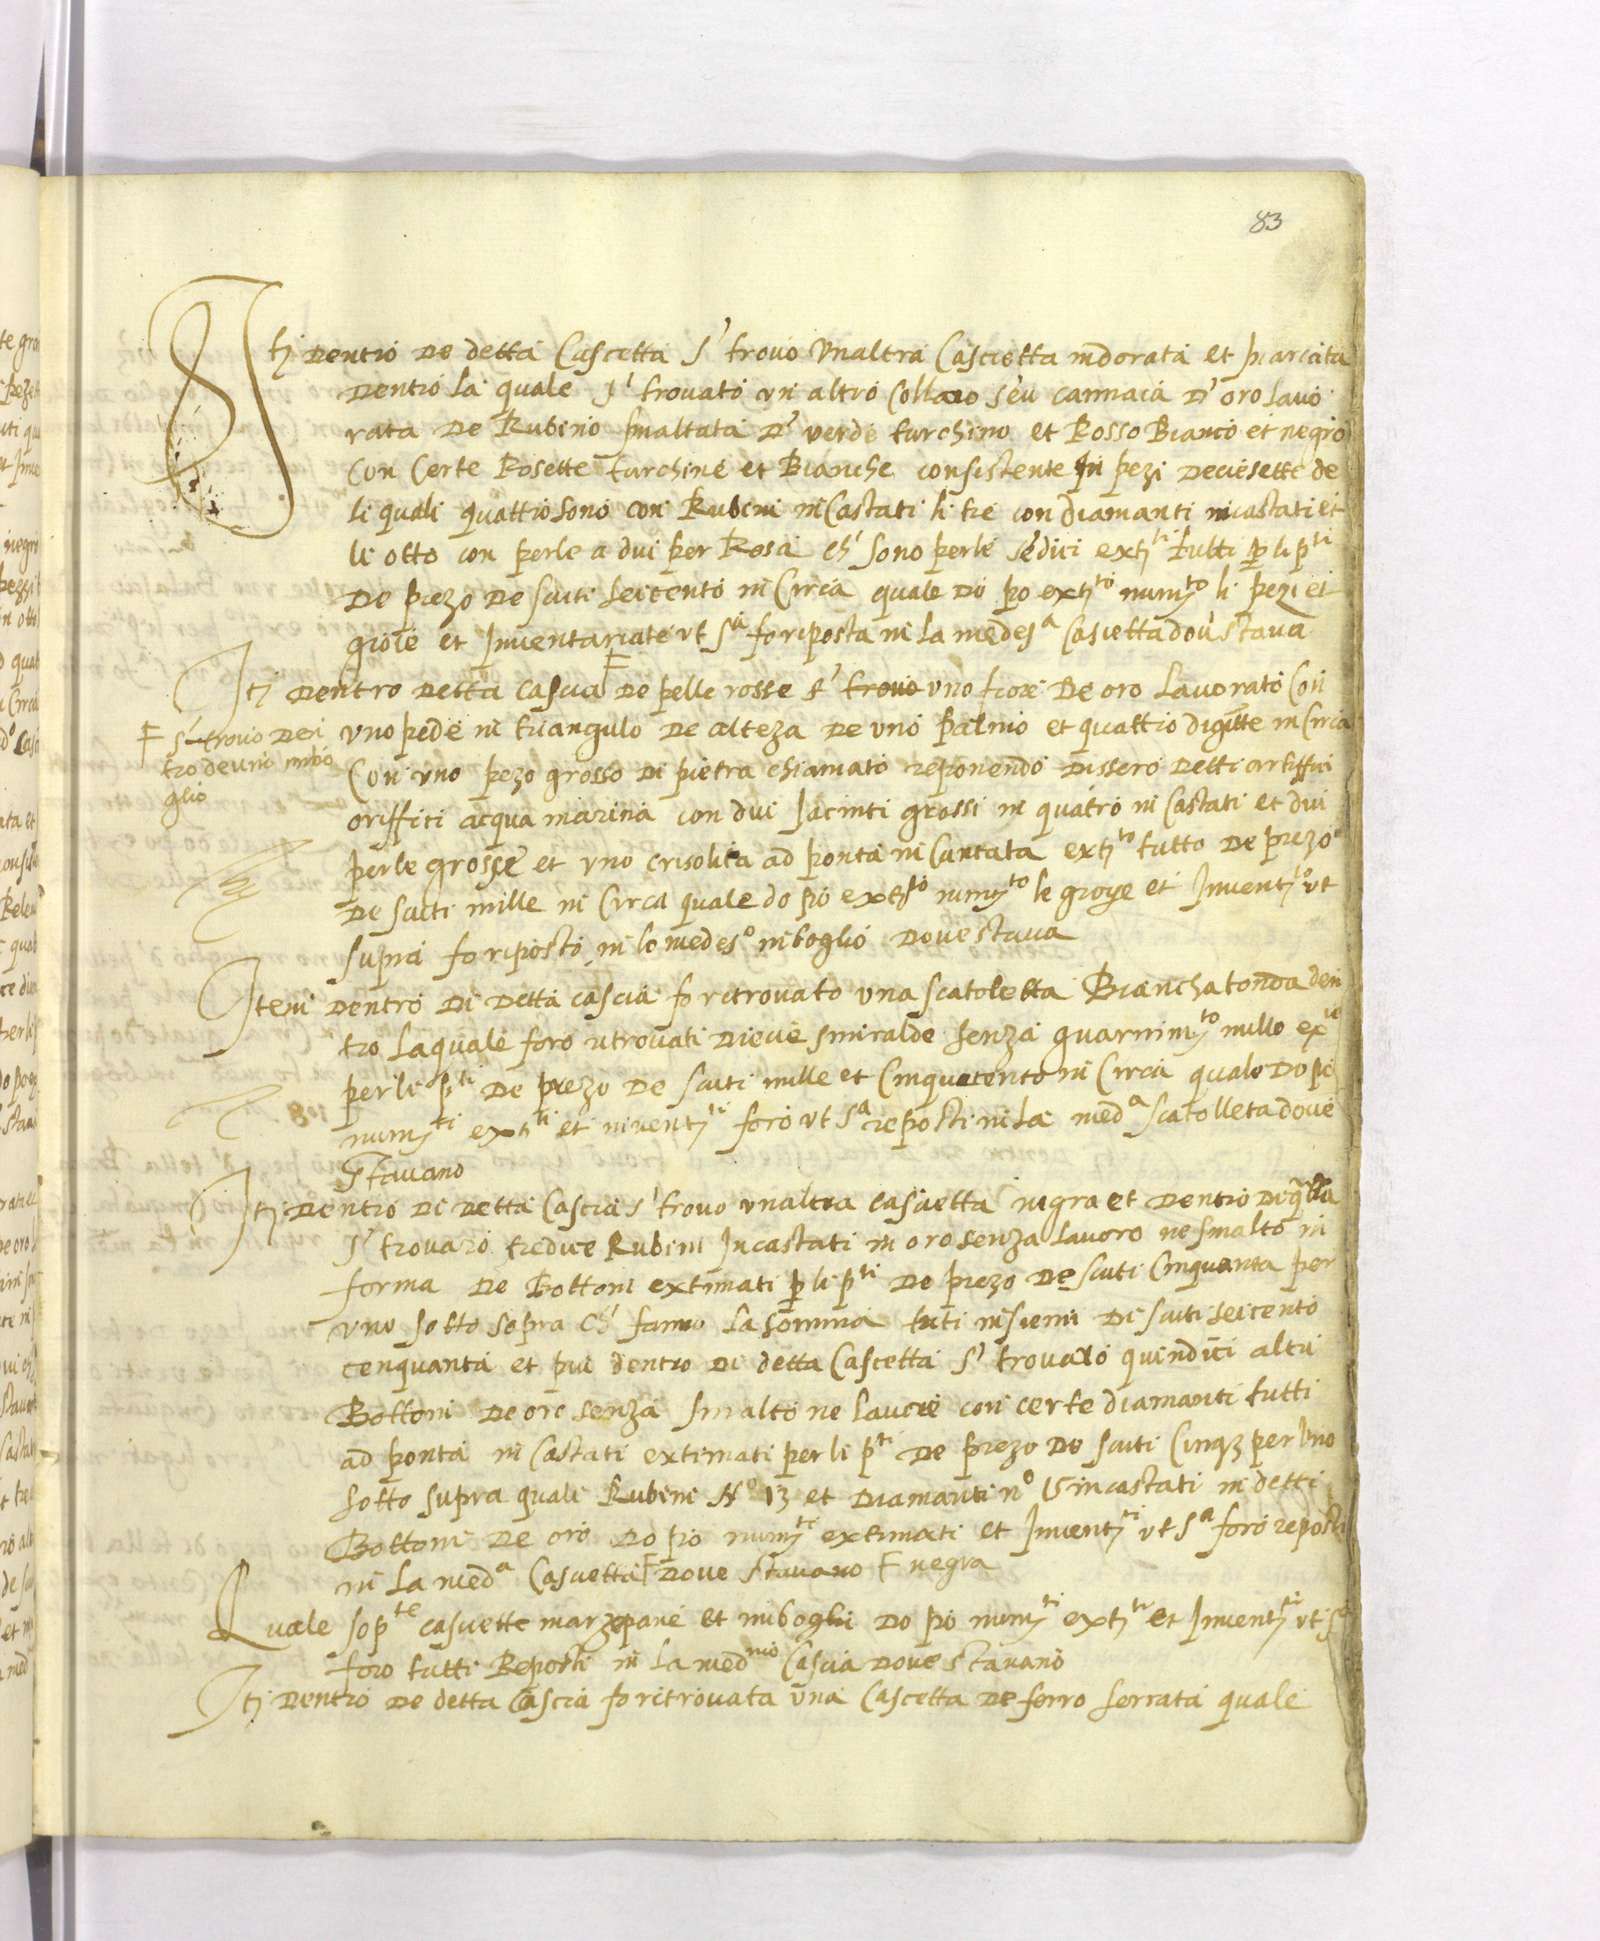 83
It̃ dentro de detta Cascetta s' trovo unaltra Cascietta indorata et
dentro la quale s' trovato un altro collaro seu cannaca d' oro lavo
rata de Rubino smaltata d' verde turchino et Rosso Bianco et negro
con certe Rosette turchine et Bianche consistente in pezi deciesette de
li quali quattro sono con Rubini incastati li tre con diamanti incastati et
li otto con perle a dui per Rosa ch' sono perle sedici ext.ti tutti p li p.ti
de prezo de scuti seicento in Circa quale do po ext.to num.to li pezi et
gioie et Inventariate ut s.a fo riposta in la medes.a Cascetta dov' stava
It̃ dentro detta cascia F de pelle rosse s' trovo uno fiore de oro lavorato con
F s' trovo den
tro de uno imbo
glio
uno pede in triangulo de alteza de uno palmo et quattro digitte in Circa
con uno pezo grosso di pietra chiamato reponendo dissero detti artiffici
oriffici acqua marina con dui Jacinti grossi in quatro in Castati et dui
perle grosse et uno crisolita ad ponta in Cantata ext.to tutto de prezo
de scuti mille in Circa quale do po ext.to num.to le gioye et Invent.to ut
supra fo riposto in lo medes.o inboglio dove stava
Item dentro di detta cascia fo ritrovato una scatoletta Biancha tonda den
tro laquale foro ritrovati diece smiralde senza guarnim.to nullo ex.te
per li p.ti de prezo de scuti mille et Cinquecento in Circa quale do po
num.ti ext.ti et invent.ti foro ut s.a reposti in la med.a scatolleta dove
stavano
It̃ dentro di detta Cascia s' trovo unaltra cascietta negra et dentro di q̃lla
s' trovaro tredice Rubini Incastati in oro senza lavoro ne smalto in
forma de Bottoni extimati p li p.ti de prezo de scuti Cinquanta per
uno sotto sopra ch' fanno la somma tuti insiemi di scuti seicento
cenquanta et piu dentro di detta Cascetta s' trovaro quindici altri
Bottoni de oro senza smalto ne lavore con certe diamanti tutti
ad ponta in Castati extimati per li p.ti de prezo de scuti Cinq3 per uno
sotto supra quali Rubini N.o 13 et diamanti n.o 15 incastati in detti
Bottoni de oro do po num.ti extimati et Invent.ti ut s.a foro reposti
in la med.a Cascietta F dove stavano F negra
Quale sop.te cascette marzapane et inbogli do po num.ti ext.ti et Invent.ti ut s.a
foro tutti Reposti in la med.mo Cascia dove stavano
It̃ dentro de detta Cascia fo ritrovata una Cascetta de ferro serrata quale